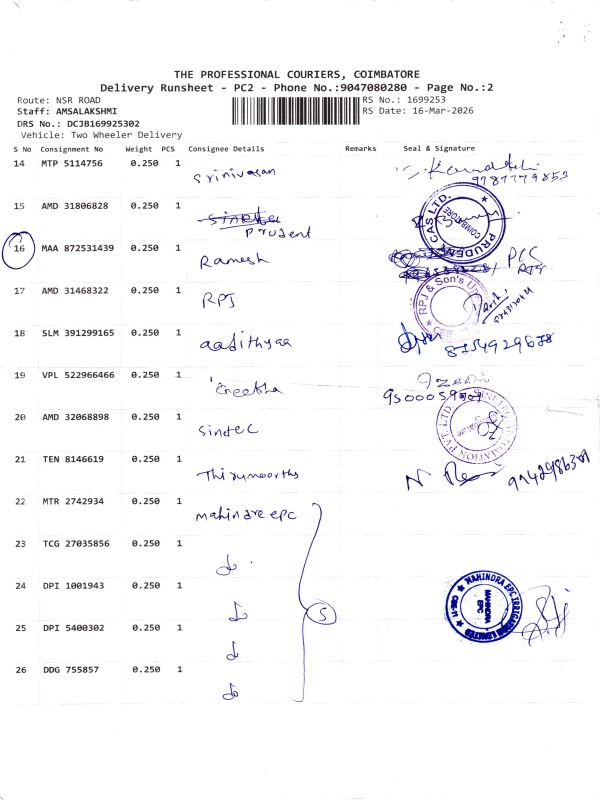 THE PROFESSIONAL COURIERS, COIMBATORE
Delivery Runsheet - PC2 - Phone No.:9047080280 - Page No.:2
Route: NSR ROAD
Staff: AMSALAKSHMI
DRS No.: DCJB169925302
Vehicle: Two Wheeler Delivery
RS No.: 1699253
RS Date: 16-Mar-2026
S No Consignment No Weight PCS Consignee Details Remarks Seal & Signature
14 MTP 5114756 0.250 1 Srinivasan
9787779853
15 AMD 31806828 0.250 1 Prudent
PRUDENT CAS LTD. COIMBATORE
16 MAA 872531439 0.250 1 Ramesh
17 AMD 31468322 0.250 1 RPJ
RPJ & Son's
18 SLM 391299165 0.250 1 aadithyaa 8754929678
19 VPL 522966466 0.250 1 Geetha
20 AMD 32068898 0.250 1 Sintec
21 TEN 8146619 0.250 1 Thirumoorthy
22 MTR 2742934 0.250 1 mahindre epc
23 TCG 27035856 0.250 1 do
24 DPI 1001943 0.250 1 do
5
MAHINDRA EPC IRRIGATION LIMITED
MAHINDRA EPC
CBE-11
25 DPI 5400302 0.250 1 do
26 DDG 755857 0.250 1 do